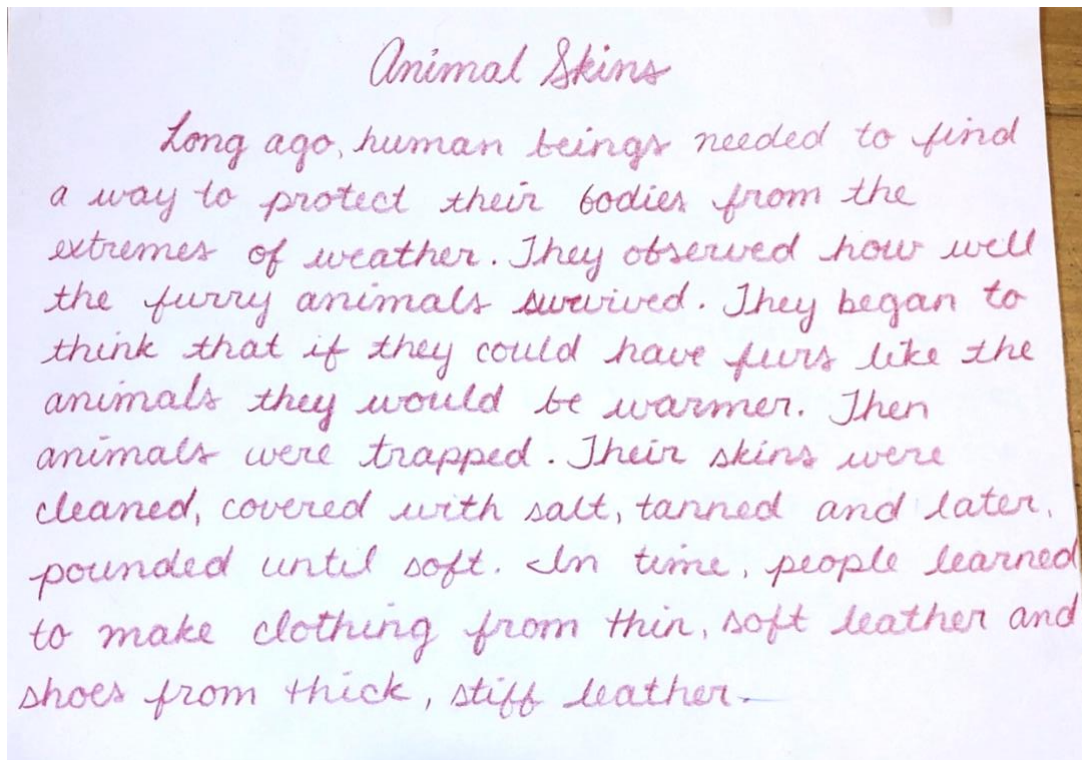 Animal Skins
Long ago, human beings needed to find
a way to protect their bodies from the
extremes of weather. They observed how well
the furry animals survived. They began to
think that if they could have furs like the
animals they would be warmer. Then
animals were trapped. Their skins were
cleaned, covered with salt, tanned and later,
pounded until soft. In time, people learned
to make clothing from thin, soft leather and
shoes from thick, stiff leather.